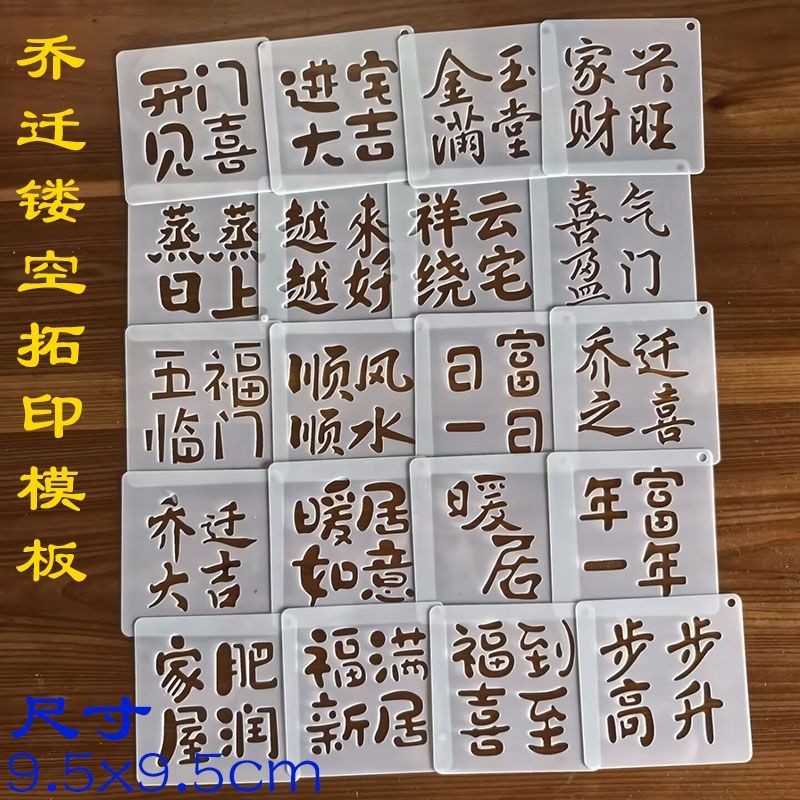 乔迁镂空拓印模板
开门
见喜
进宅
大吉
金玉
满堂
家兴
财旺
蒸蒸
日上
越来
越好
祥云
绕宅
喜气
盈门
五福
临门
顺风
顺水
日富
一日
乔迁
之喜
乔迁
大吉
暖居
如意
暖
居
年富
一年
家肥
屋润
福满
新居
福到
喜至
步步
高升
尺寸
9.5x9.5cm